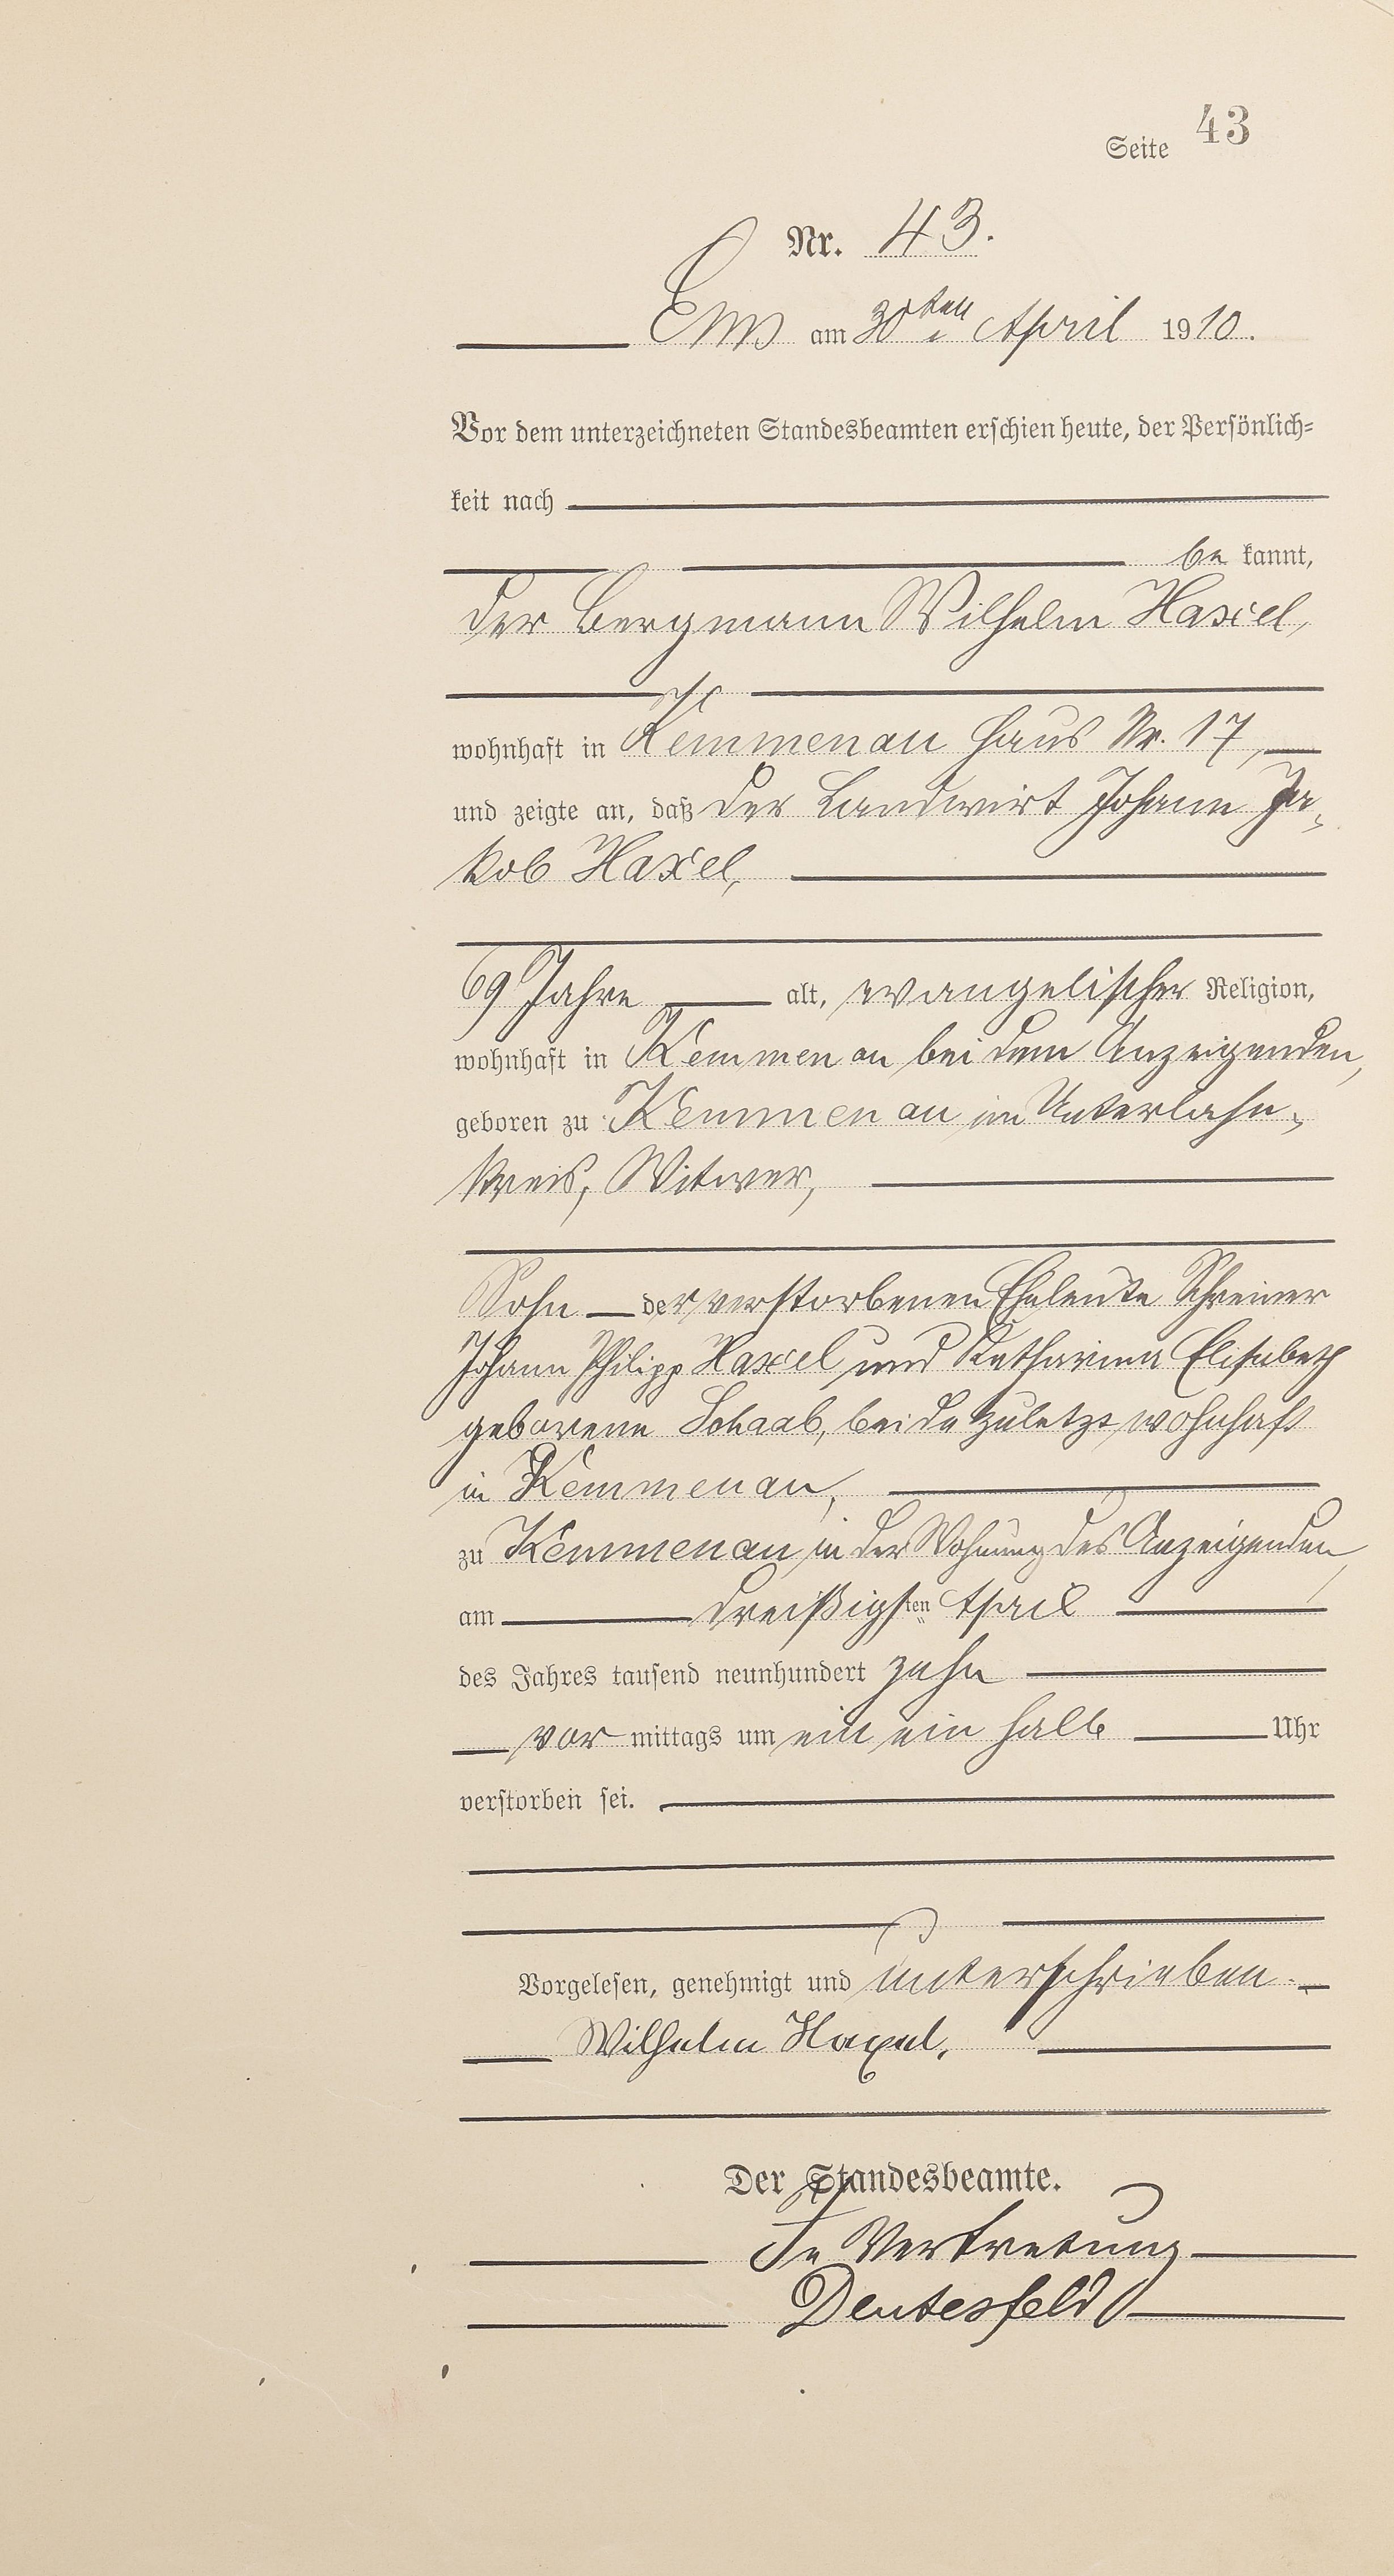 Seite 43
Nr. 43.
Ems am 30ten April 1910.
Vor dem unterzeichneten Standesbeamten erschien heute, der Persönlich-
keit nach
be kannt,
der Bergmann Wilhelm Haxel,
wohnhaft in Kemmenau Haus Nr. 17,
und zeigte an, daß der Landwirt Johann Ja-
kob Haxel,
69 Jahre alt, evangelischer Religion,
wohnhaft in Kemmenau bei dem Anzeigenden,
geboren zu Kemmenau im Unterlahn-
kreis, Witwer,
Sohn der verstorbenen Eheleute Schreiner
Johann Philipp Haxel und Katharina Elisabeth
geborene Schaab, beide zuletzt wohnhaft
in Kemmenau,
zu Kemmenau in der Wohnung des Anzeigenden,
am dreißigsten April
des Jahres tausend neunhundert zehn
vor mittags um ein ein halb Uhr
verstorben sei.
Vorgelesen, genehmigt und unterschrieben.
Wilhelm Haxel.
Der Standesbeamte.
In Vertretung
Deutesfeld